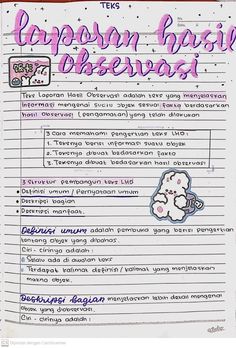 TEKS
laporan hasil
observasi
Teks Laporan Hasil Observasi adalah teks yang menjelaskan
informasi mengenai suatu objek sesuai fakta berdasarkan
hasil observasi (pengamatan) yang telah dilakukan
3 Cara memahami pengertian teks LHO :
1. Teksnya berisi informasi suatu objek
2. Teksnya dibuat berdasarkan fakta
3. Teksnya dibuat berdasarkan hasil observasi
3 Struktur pembangun teks LHO
Definisi umum / Pernyataan umum
Deskripsi bagian
Deskripsi manfaat.
Definisi umum adalah pembuka yang berisi pengertian
tentang objek yang dibahas.
Ciri - cirinya adalah :
Selalu ada di awalan teks
Terdapat kalimat definisi / kalimat yang menjelaskan
makna objek.
Deskripsi bagian menjelaskan lebih detail mengenai
objek yang diobservasi.
Ciri - cirinya adalah :
Dipindai dengan CamScanner